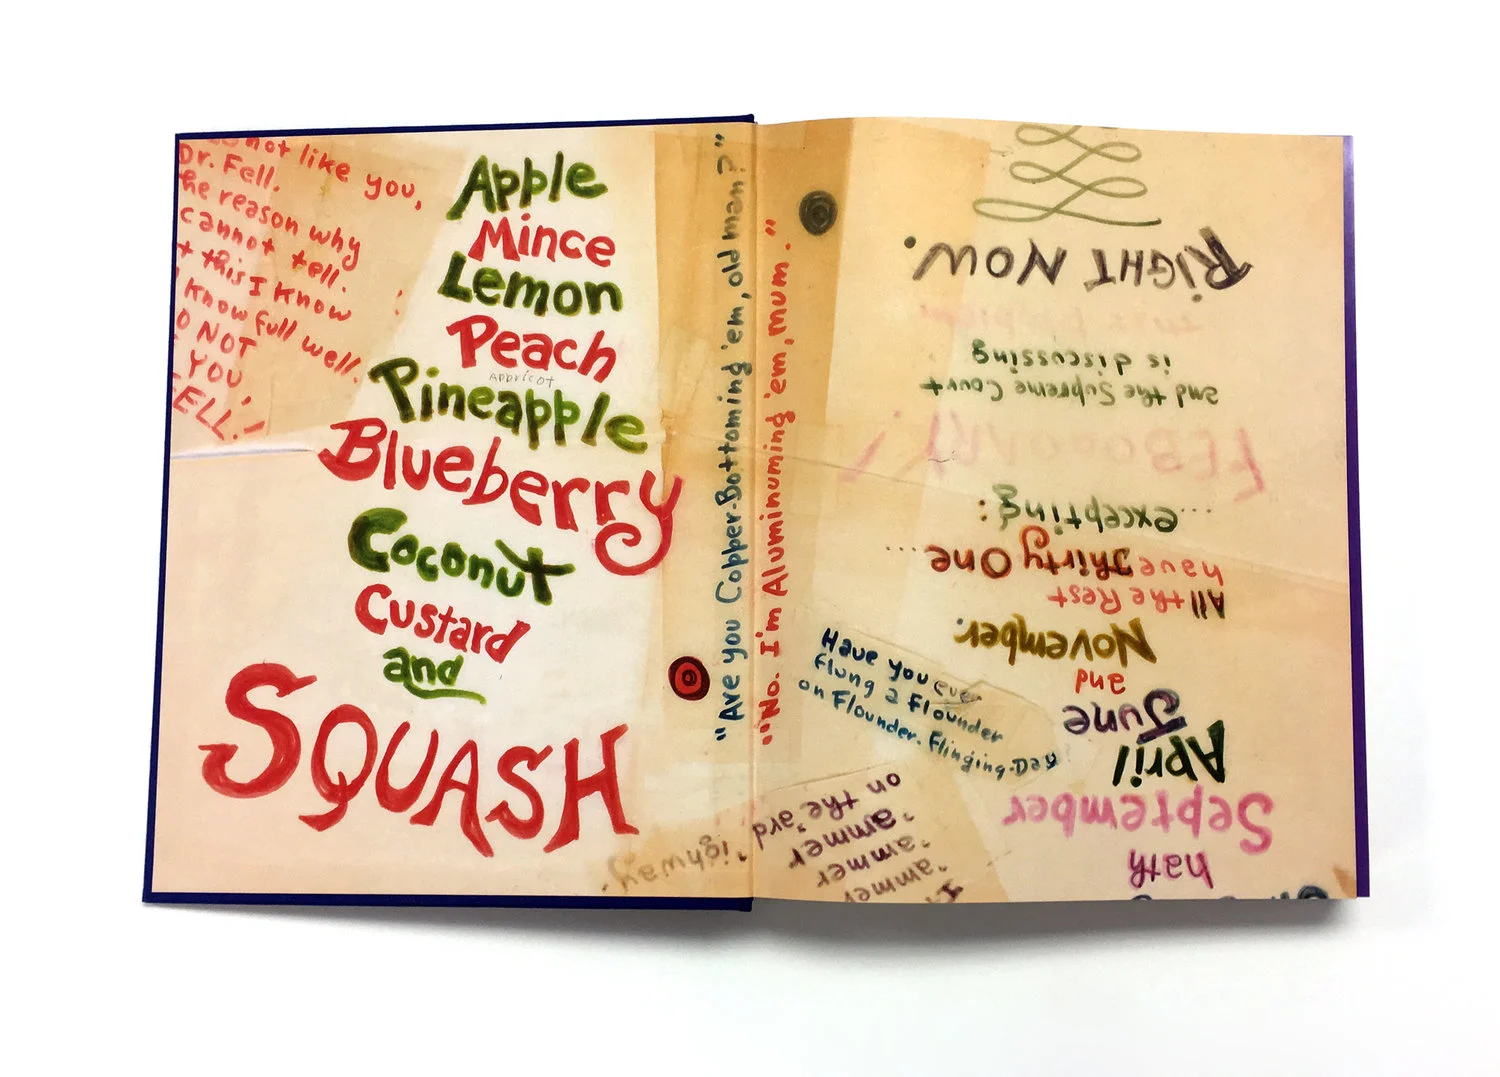 not like you,
Dr. Fell.
he reason why
cannot tell.
t this I know
know full well.
O NOT
YOU,
ELL!
Apple
Mince
Lemon
Peach
Appricot
Pineapple
Blueberry
Coconut
Custard
and
SQUASH
"Are you Copper-Bottoming 'em, old man?"
"No. I'm Aluminuming 'em, mum."
Have you ever
flung a flounder
on Flounder-Flinging-Day
'ammer
'ammer
'ammer
on the 'ard 'ighway.
hath
September
April
June
and
November.
All the Rest
have Thirty One...
...excepting:
and the Supreme Court
is discussing
RIGHT NOW.